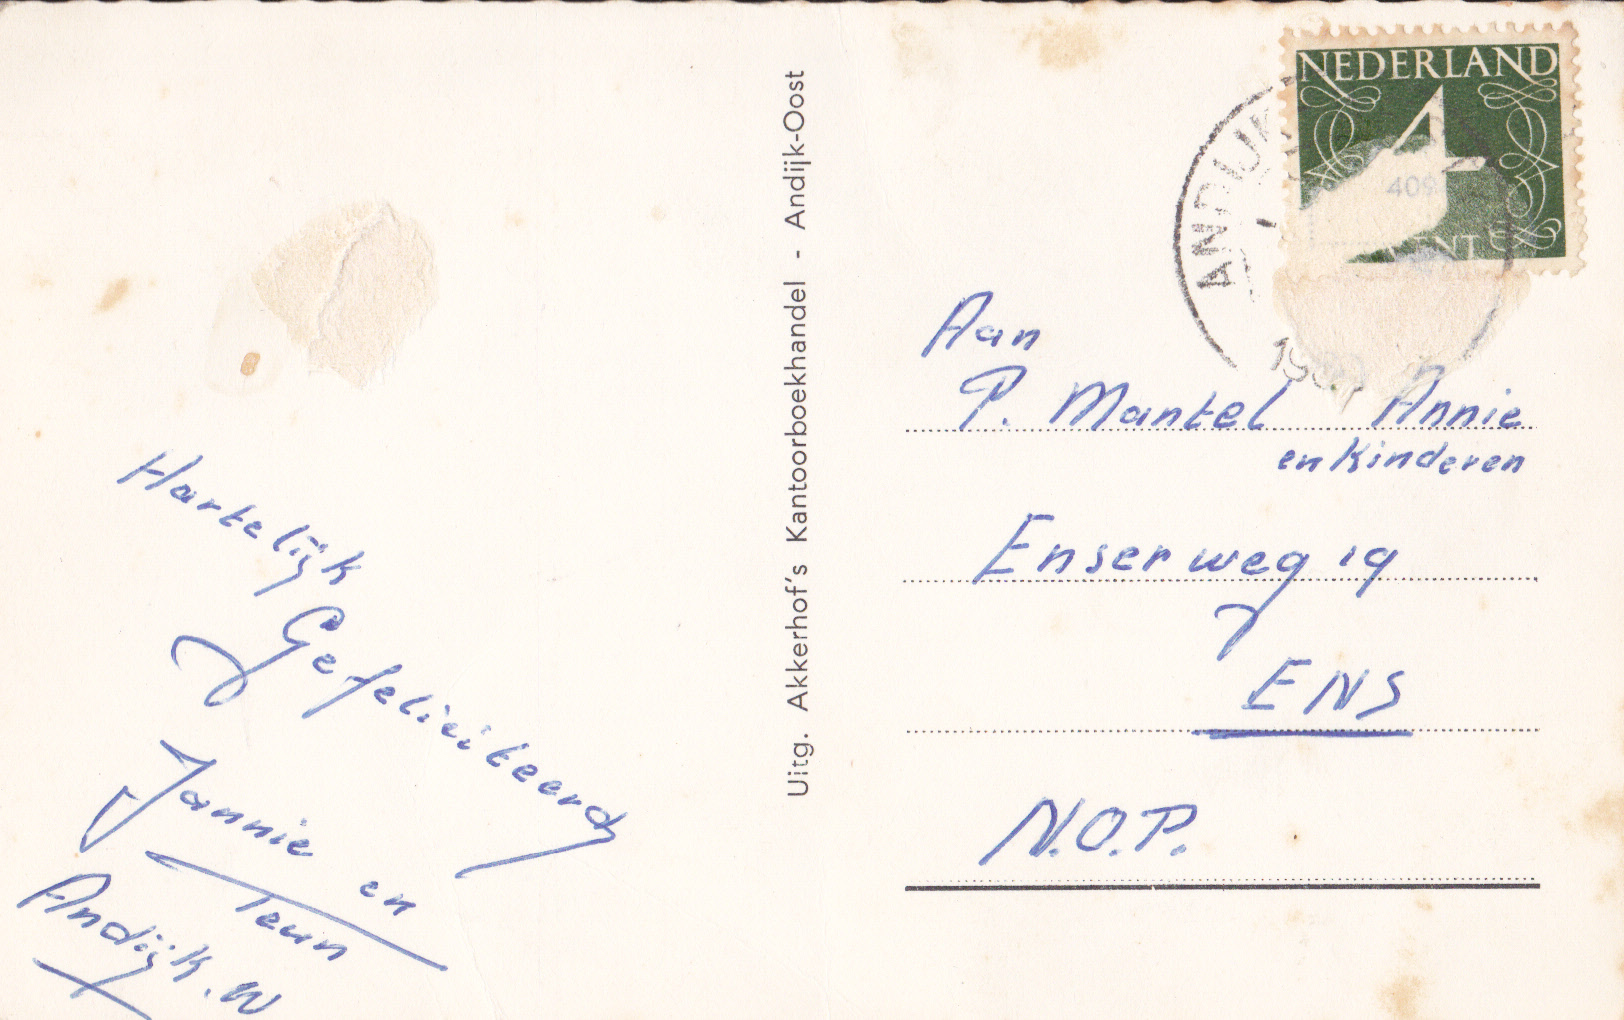 Hartelijk
Gefeliciteerd
Jannie en
Teun
Andijk. W
Uitg. Akkerhof's Kantoorboekhandel - Andijk-Oost
NEDERLAND
4
CENT
ANDIJK
Aan
P. Mantel Annie
en Kinderen
Enserweg 19
ENS
N.O.P.